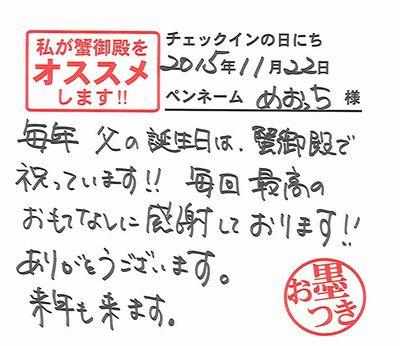 私が蟹御殿を
オススメ
します!!
チェックインの日にち
2015年11月22日
ペンネーム めおっち 様
毎年 父の誕生日は、蟹御殿で
祝っています!! 毎回 最高の
おもてなしに感謝しております!!
ありがとうございます。
来年も来ます。
お墨つき